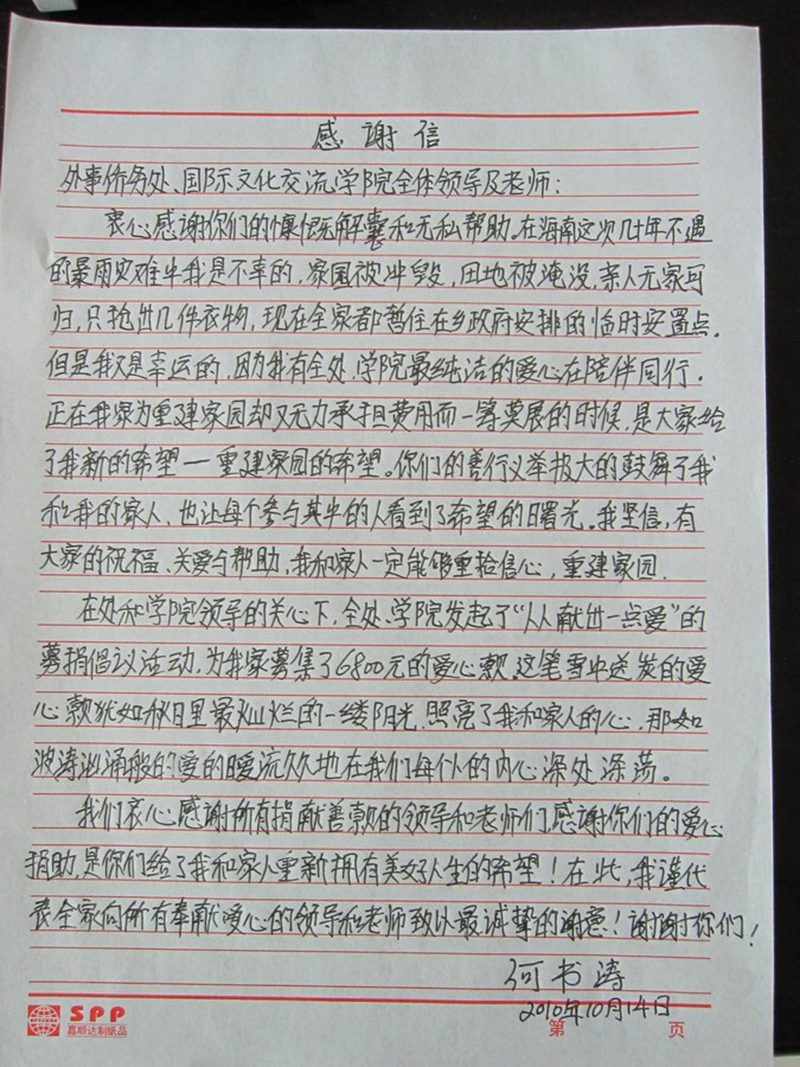 感谢信
外事侨务处、国际文化交流学院全体领导及老师：
衷心感谢你们的慷慨解囊和无私帮助。在海南这次几十年不遇
的暴雨灾难中我是不幸的，家园被冲毁，田地被淹没，亲人无家可
归，只抢出几件衣物，现在全家都暂住在乡政府安排的临时安置点。
但是我又是幸运的，因为我有全处、学院最纯洁的爱心在陪伴同行。
正在我家为重建家园却又无力承担费用而一筹莫展的时候，是大家给
了我新的希望—重建家园的希望。你们的善行义举极大的鼓舞了我
和我的家人，也让每个参与其中的人看到了希望的曙光。我坚信，有
大家的祝福、关爱与帮助，我和家人一定能够重拾信心，重建家园.
在处和学院领导的关心下，全处、学院发起了“人人献出一点爱”的
募捐倡议活动，为我家募集了6800元的爱心款。这笔雪中送炭的爱
心款犹如秋日里最灿烂的一缕阳光，照亮了我和家人的心，那如
波涛汹涌般的爱的暖流久久地在我们每个人的内心深处涤荡。
我们衷心感谢所有捐献善款的领导和老师们，感谢你们的爱心
捐助，是你们给了我和家人重新拥有美好人生的希望！在此，我谨代
表全家向所有奉献爱心的领导和老师致以最诚挚的谢意！谢谢你们！
何书涛
2010年10月14日
SPP
嘉顺达制纸品
第 页